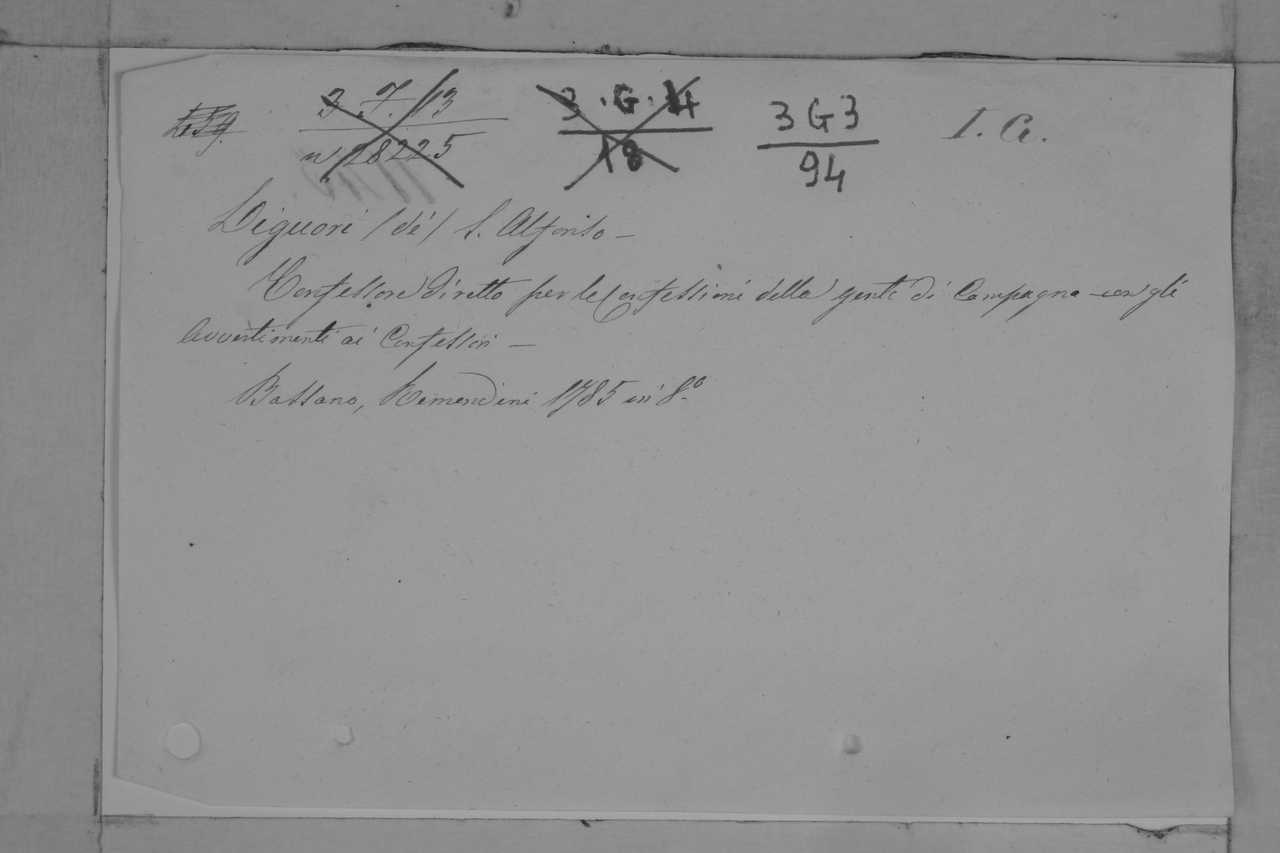 3. 7. 13 3. G. 14 3 G 3 I. a.
n 28225 18 94
Liguori (de) S. Alfonso —
Confessore diretto per le Confessioni della gente di Campagna – con gli
Avvertimenti ai Confessori —
Bassano, Remondini 1785 in 8.º